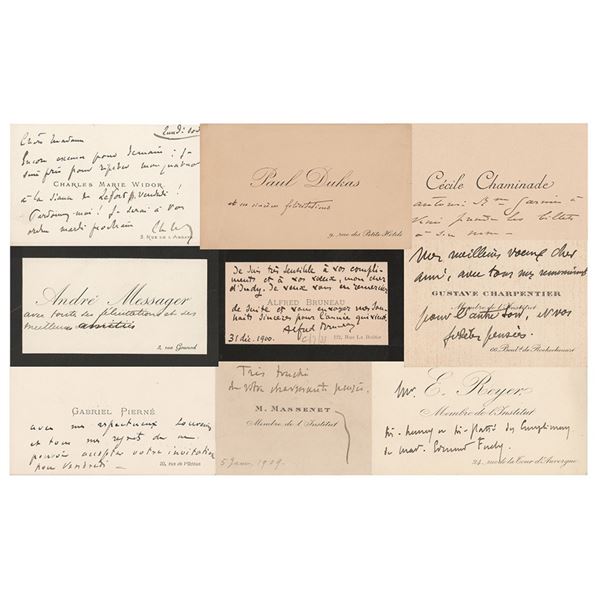 Lundi soir
Chère Madame
Encore excuse pour demain : j'ai
suis pris pour répéter mon quatuor
CHARLES MARIE WIDOR
à la
Pardonnez-moi ! Je serai à vos
ordres mardi prochain
3 RUE DE L'ABBAYE
Paul Dukas
et ses sincères félicitations
9, rue des Petits Hôtels
Cécile Chaminade
les billets
à son nom
André Messager
avec toutes ses félicitations et ses
meilleures amitiés
2, rue Gounod
Je suis très sensible à vos compli-
ments et à vos vœux, mon cher
d'Indy. Je veux vous en remercier
ALFRED BRUNEAU
de suite et vous envoyer nos sou-
haits sincères pour l'année qui vient.
Alfred Bruneau
31 déc. 1900.
1/2, RUE LA BOÉTIE
Mes meilleurs voeux cher
ami, avec tous mes remerciements
GUSTAVE CHARPENTIER
Membre de l'Institut
pour l'autre soir, et vos
pensées.
66, Boul.d de Rochechouart
GABRIEL PIERNÉ
avec ses respectueux souvenirs
et tous ses regrets de ne
pouvoir accepter votre invitation
pour vendredi
Très touché
de votre charmante pensée.
M. MASSENET
Membre de l'Institut
5 Janv. 1909.
Mr. E. Reyer
Membre de l'Institut
très heureux et très flatté des compliments
de Mad. Edmond Fuchs.
24, rue de la Tour d'Auvergne